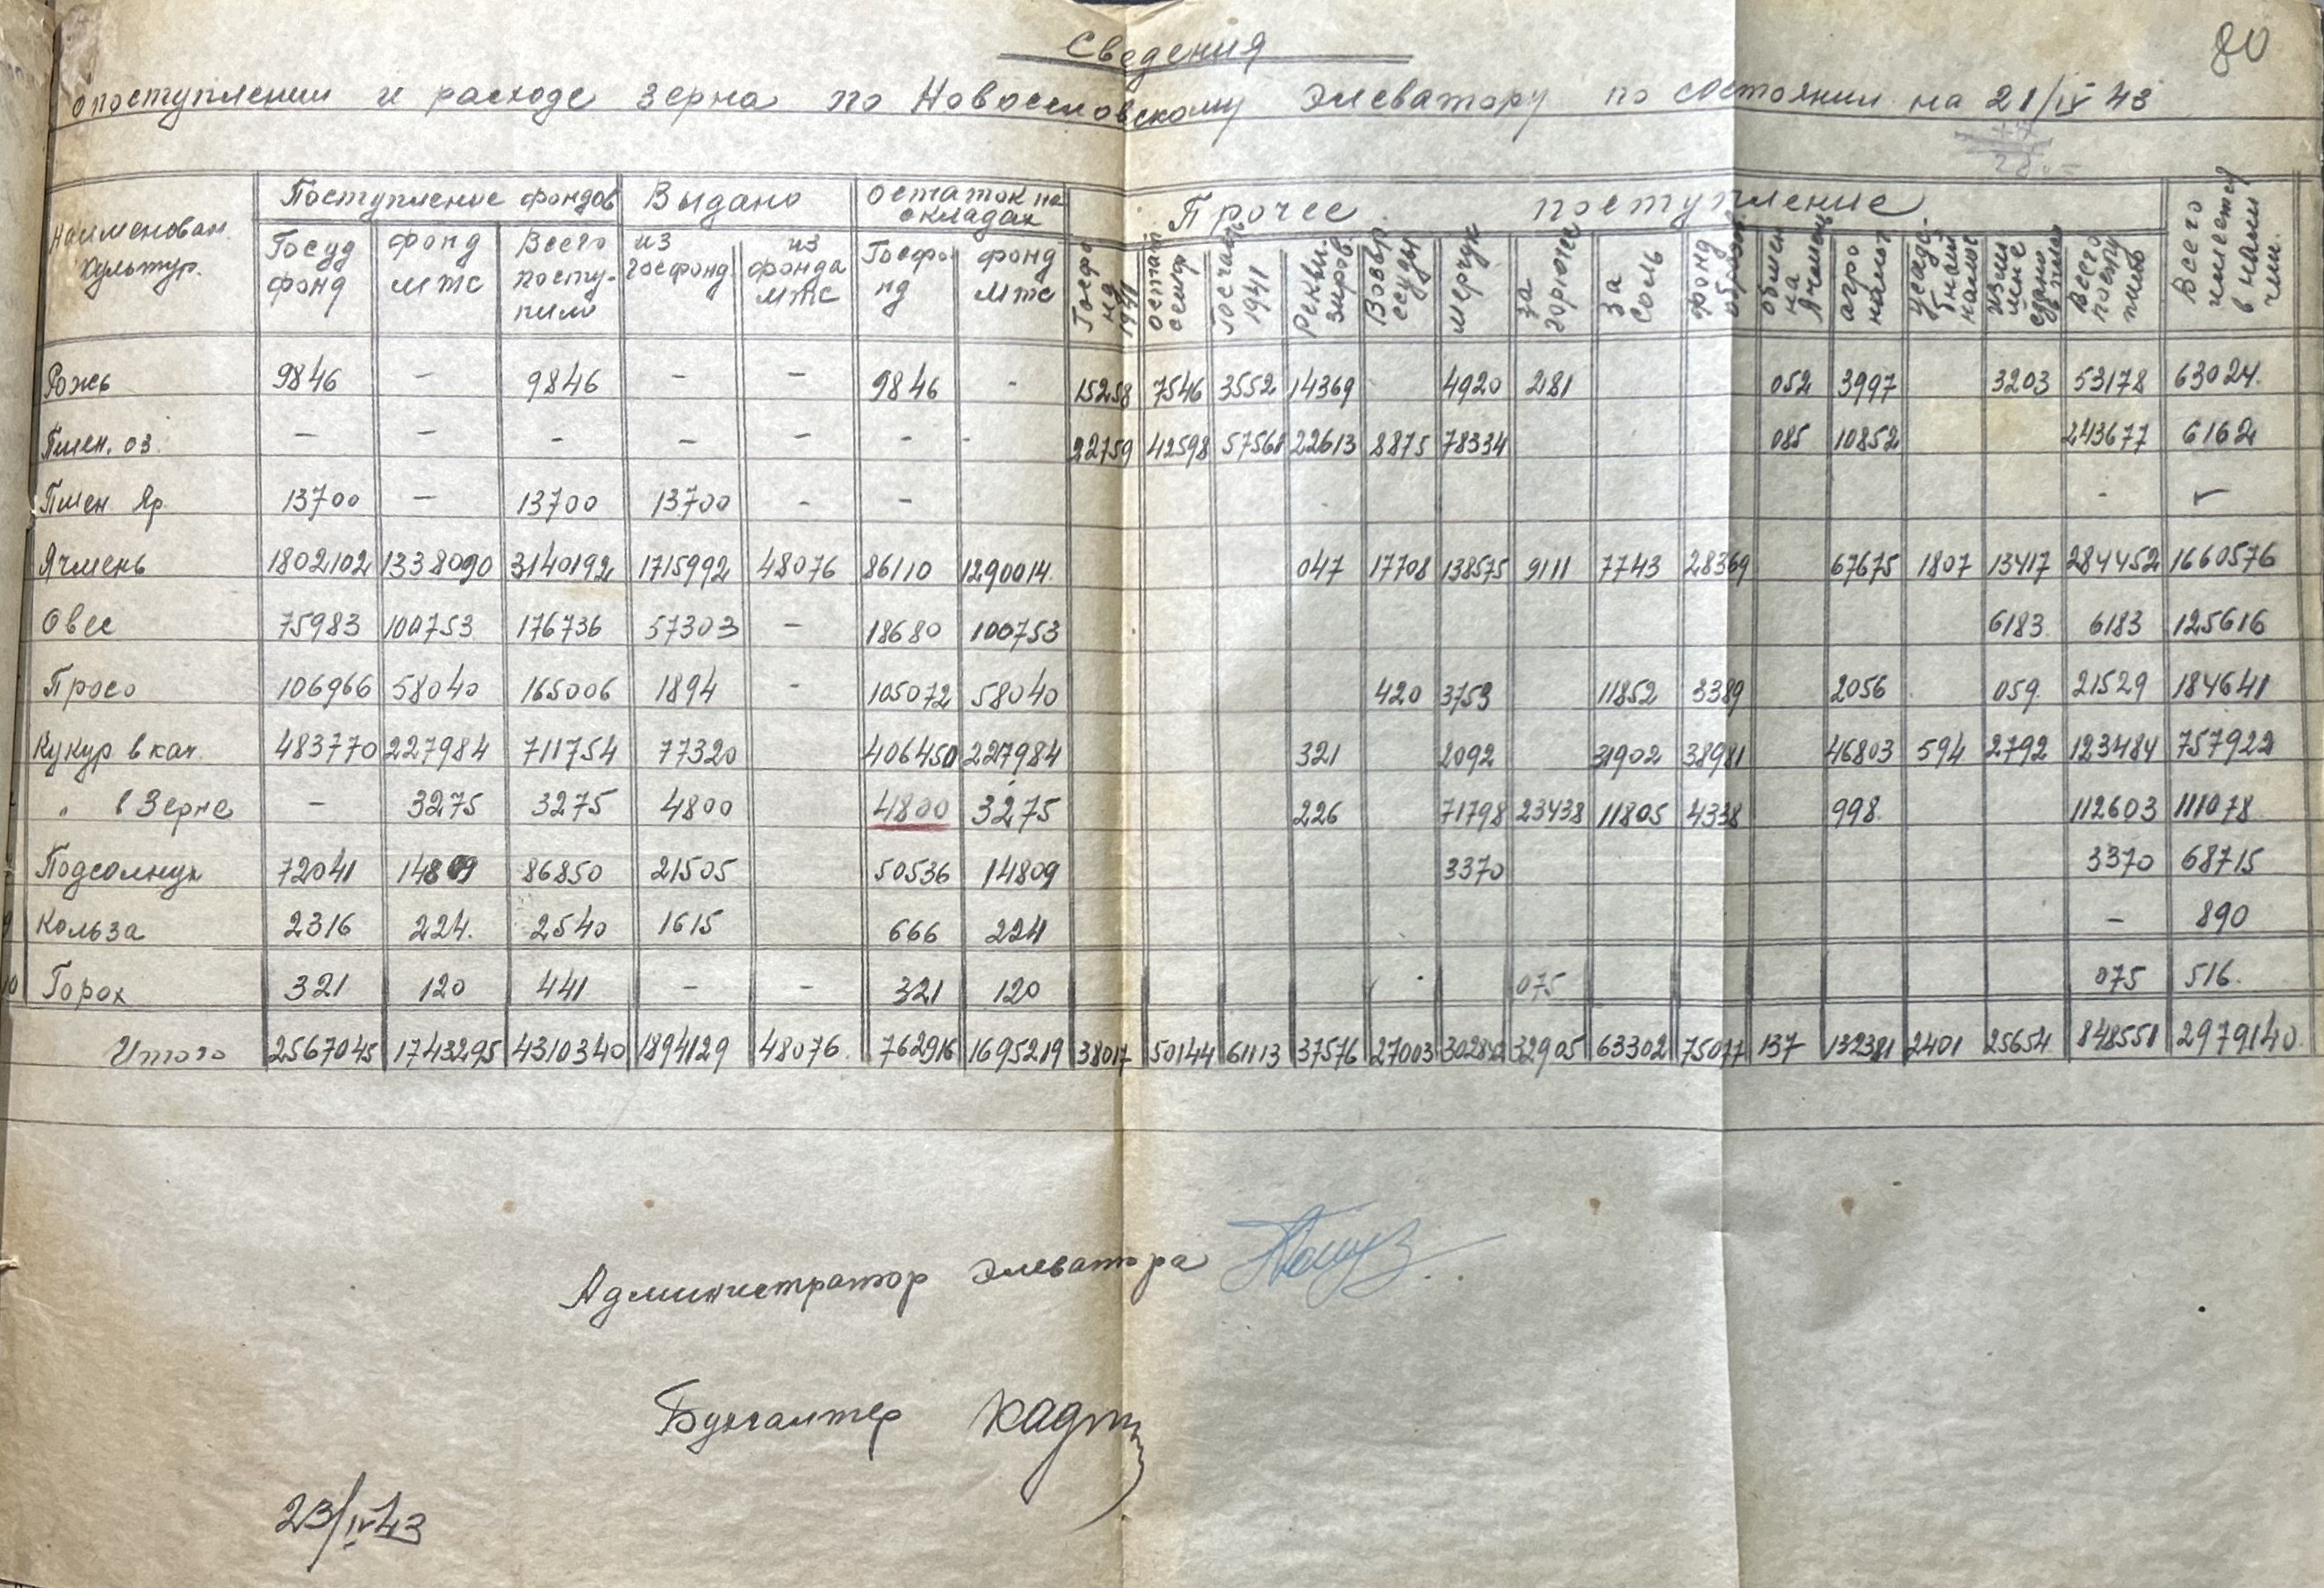 80
Сведения
о поступлении и расходе зерна по Новоселовскому Элеватору по состоянии на 21/IV 43
Наименован. культур. | Поступление фондов | Выдано | Остаток на складах | Прочее поступление | Всего имеется в наличи.
Госуд фонд | фонд мтс | Всего поступило | из Госфонд. | из фонда мтс | Госфонд | фонд мтс | Госфонд 1941 | остат. | Госчасть 1941 | Реквизиров. | Возвр. ссуды | мерчук | за горючее | за соль | фонд | обмен на Ячмень | агро налог | усадебный налог | Всего поступило
Рожь 9846 – 9846 – – 9846 - 15258 7546 3552 14369 4920 281 052 3997 3203 53178 63024.
Пшен. оз. – – – – – - - 22759 42598 57561 22613 8875 78334 085 10852 243677 6162
Пшен Яр. 13700 – 13700 13700 - - - –
Ячмень 1802102 1338090 3140192 1715992 48076 86110 1290014. 047 17708 138575 9111 7743 28369 67675 1807 13417 284452 1660576
Овес 75983 100753 176736 57303 – 18680 100753 6183 6183 125616
Просо 106966 58040 165006 1894 - 105072 58040 420 3753 11852 3389 2056 059 21529 184641
Кукур в кач. 483770 227984 711754 77320 406450 227984 321 2092 31902 38981 46803 594 2792 123484 757922
" в Зерне – 3275 3275 4800 4800 3275 226 71798 23438 11805 4338 998. 112603 111078
Подсолнух 72041 14809 86850 21505 50536 14809 3370 3370 68715
9 Кольза 2316 224. 2540 1615 666 224 – 890
10 Горох 321 120 441 – – 321 120 075 075 516.
Итого 2567045 1743295 4310340 1894129 48076. 762916 1695219 38017 50144 61113 37576 27003 302842 32905 63302 75077 137 132381 2401 25654 848551 2979140
Администратор Элеватора
Бухгалтер
23/IV 43